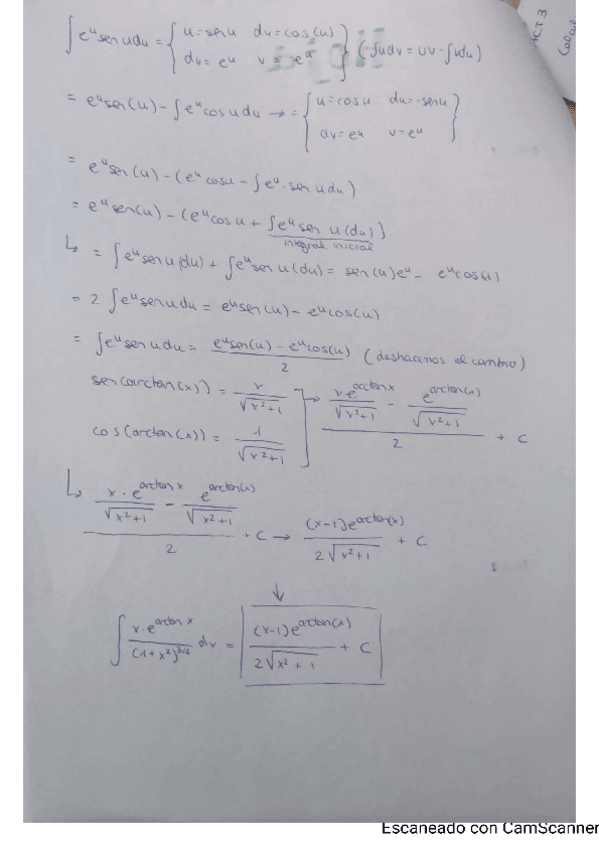 ∫e^u sen u du = { u = sen u du = cos(u) dv = e^u v = e^u } (∫udv = uv - ∫vdu)
= e^u sen(u) - ∫e^u cos u du → = { u = cos u du = -sen u dv = e^u v = e^u }
= e^u sen(u) - (e^u cos u - ∫e^u · sen u du)
= e^u sen(u) - (e^u cos u + ∫e^u sen u (du))
integral inicial
↳ = ∫e^u sen u (du) + ∫e^u sen u (du) = sen(u)e^u - e^u cos(u)
= 2 ∫e^u sen u du = e^u sen(u) - e^u cos(u)
= ∫e^u sen u du = (e^u sen(u) - e^u cos(u))/2 (deshacemos el cambio)
sen(arctan(x)) = x/√(x²+1) ] → (x·e^arctan x/√(x²+1) - e^arctan(x)/√(x²+1))/2 + C
cos(arctan(x)) = 1/√(x²+1)
↳ (x·e^arctan x/√(x²+1) - e^arctan(x)/√(x²+1))/2 + C → (x-1)e^arctan(x)/(2√(x²+1)) + C
↓
∫ x·e^arctan x/(1+x²)^3/2 dx = (x-1)e^arctan(x)/(2√(x²+1)) + C
Escaneado con CamScanner